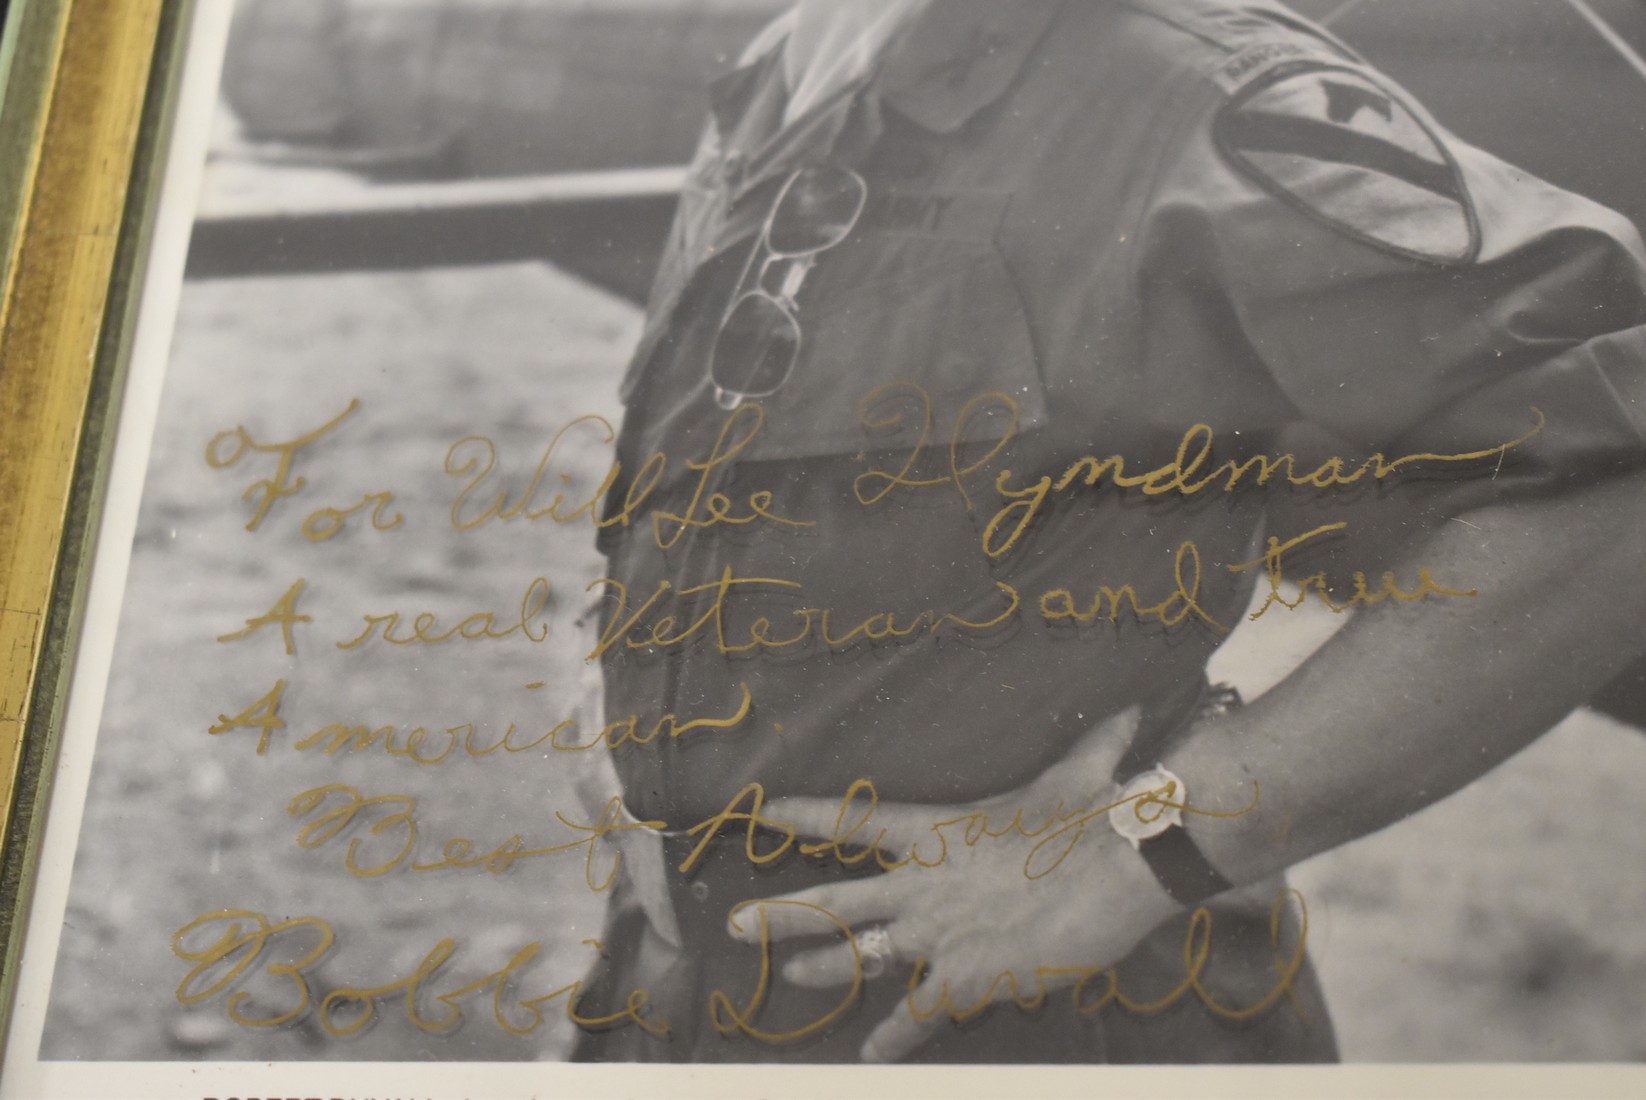 RANGER
ARMY
For Will Lee Hyndman
A real Veteran and true
American.
Best Always,
Bobbie Duvall
ROBERT DUVALL